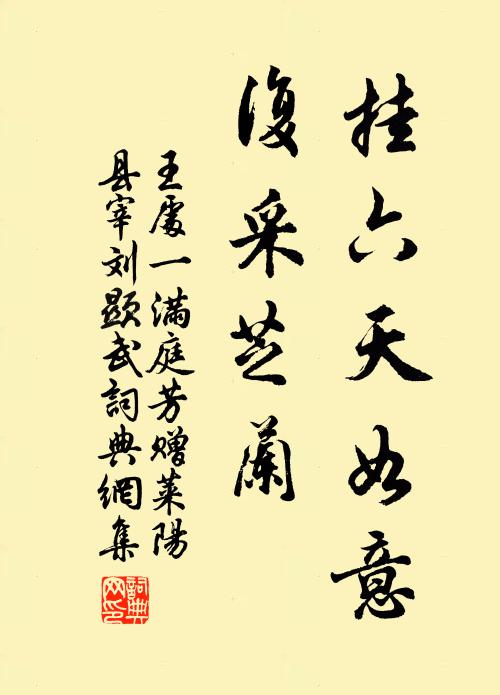 挂六天如意
復采芝蘭
王處一满庭芳赠萊陽
县宰刘顯武詞典網集
詞典网印